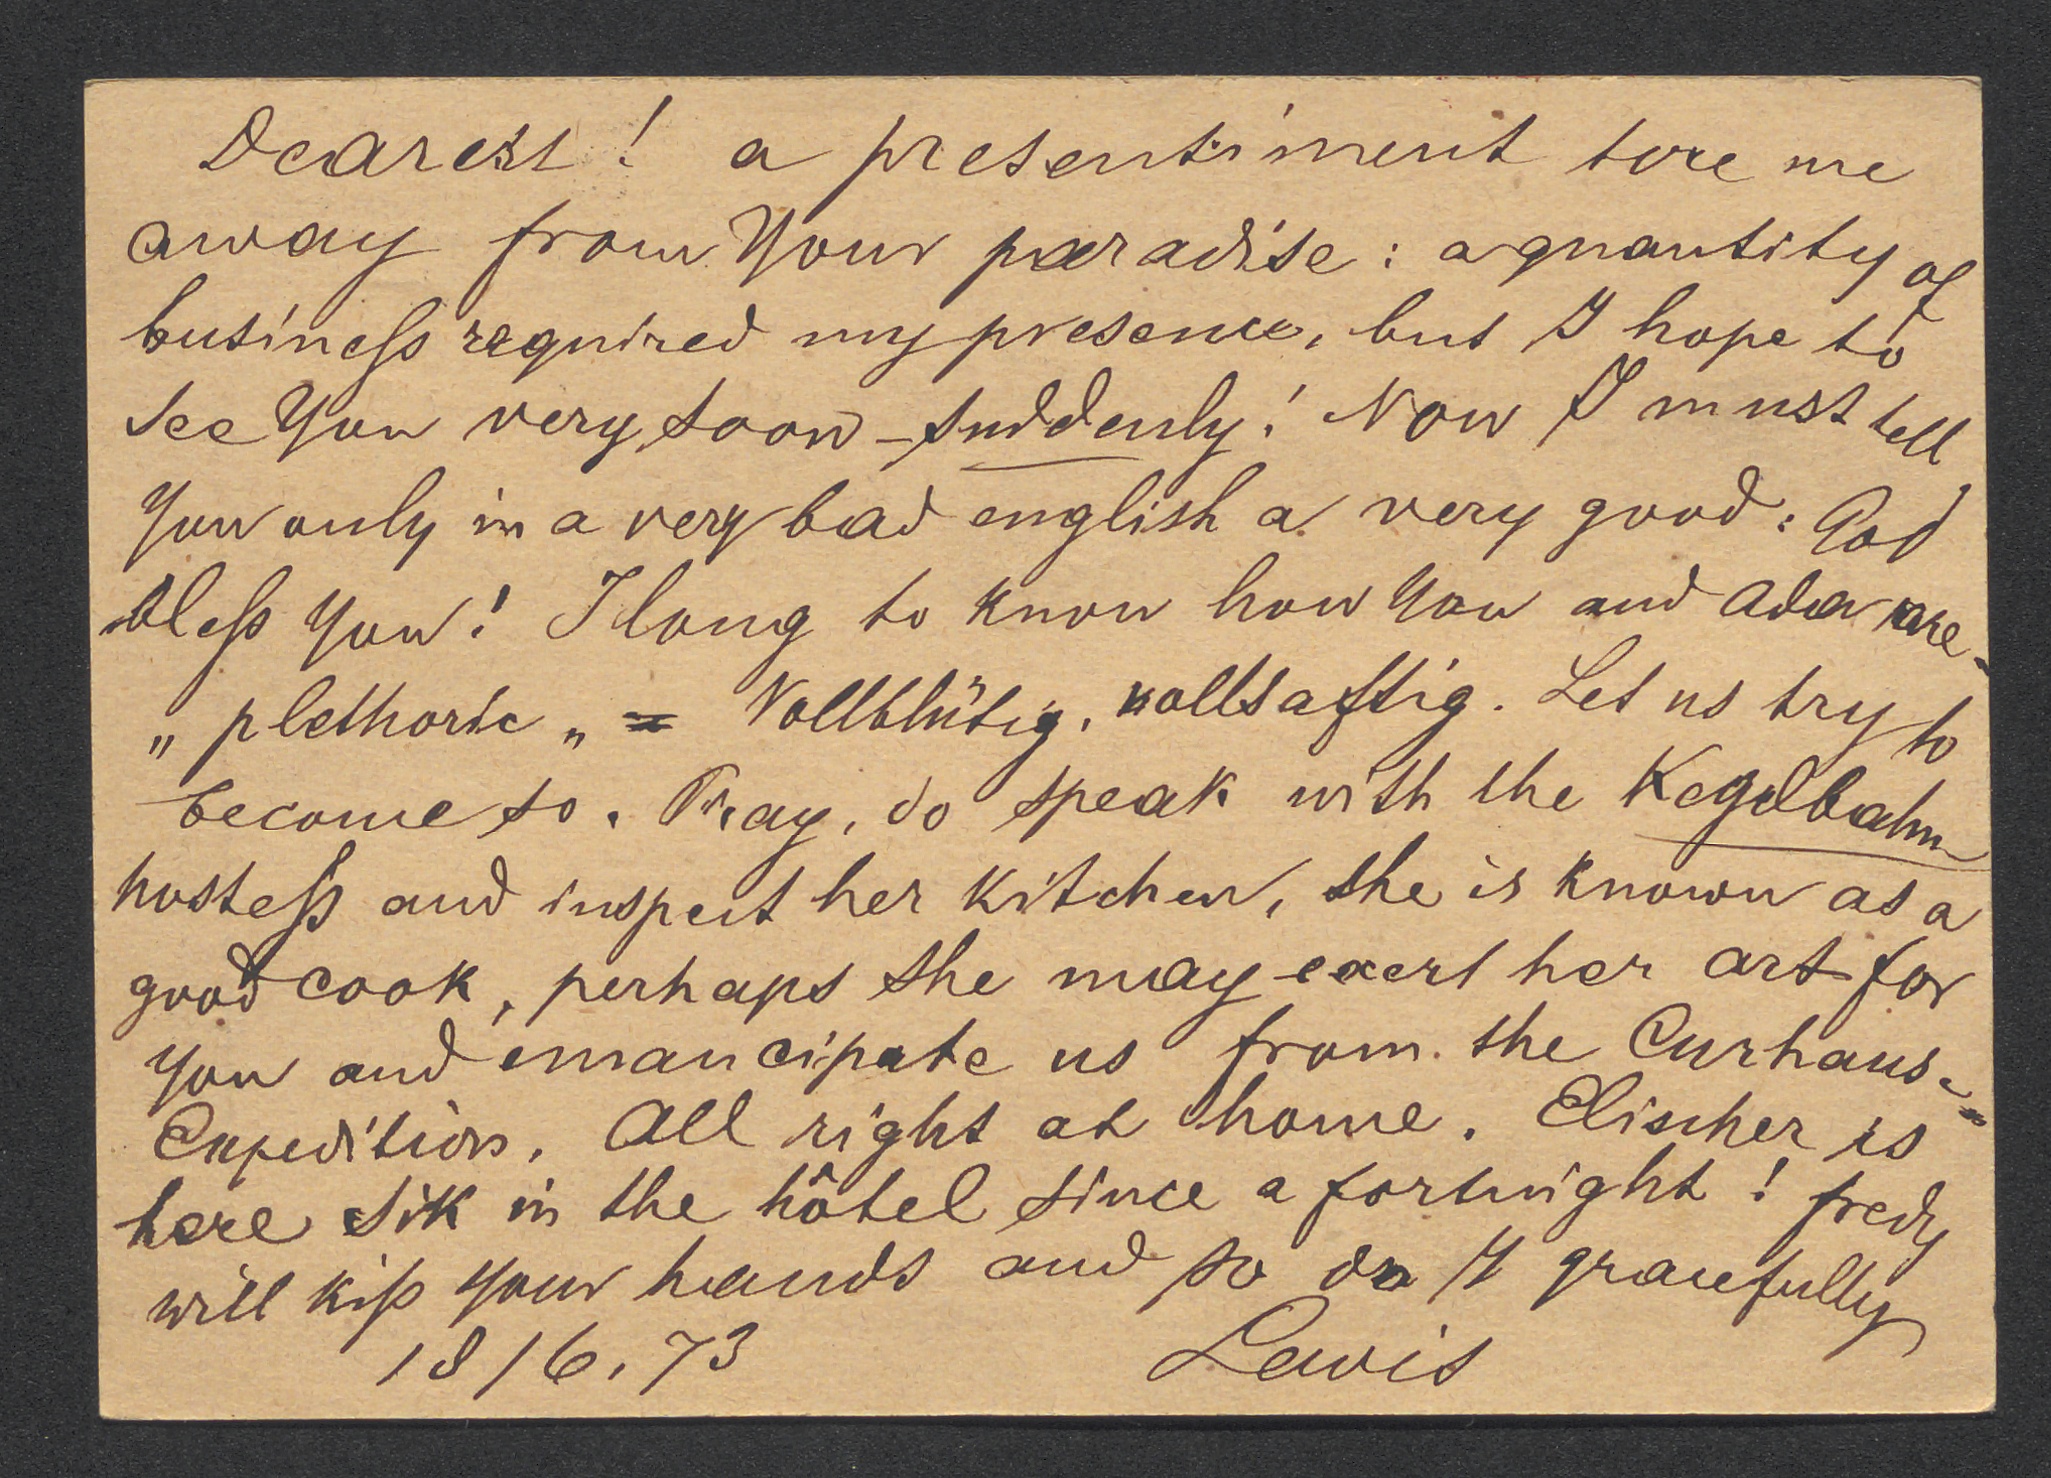 Dearest! a presentiment tore me
away from Your paradise: a quantity of
busineſs required my presence, but I hope to
see You very soon – suddenly! Now I must tell
You only in a very bad english a very good: God
bleſs You! I long to know how You and Ada are –
„plethoric„ = Vollblütig, vollsaftig. Let us try to
become so. Pray, do speak with the Kegelbahn
hosteſs and inspect her kitchen, she is known as a
good cook, perhaps she may exert her art for
You and emancipate us from the Curhaus-
Expedition. All right at home. Elischer is
here sik in the hôtel since a fortnight! fredy
will kiſs Your hands and so do I gracefully
18/6. 73 Lewis